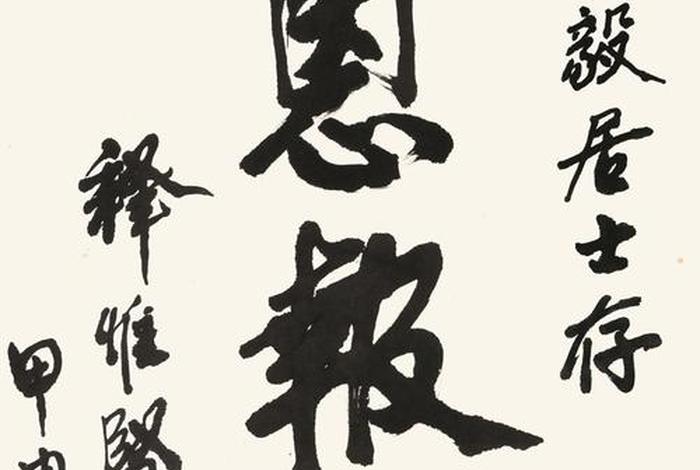 毅居士存
恩報
释惟賢
甲申